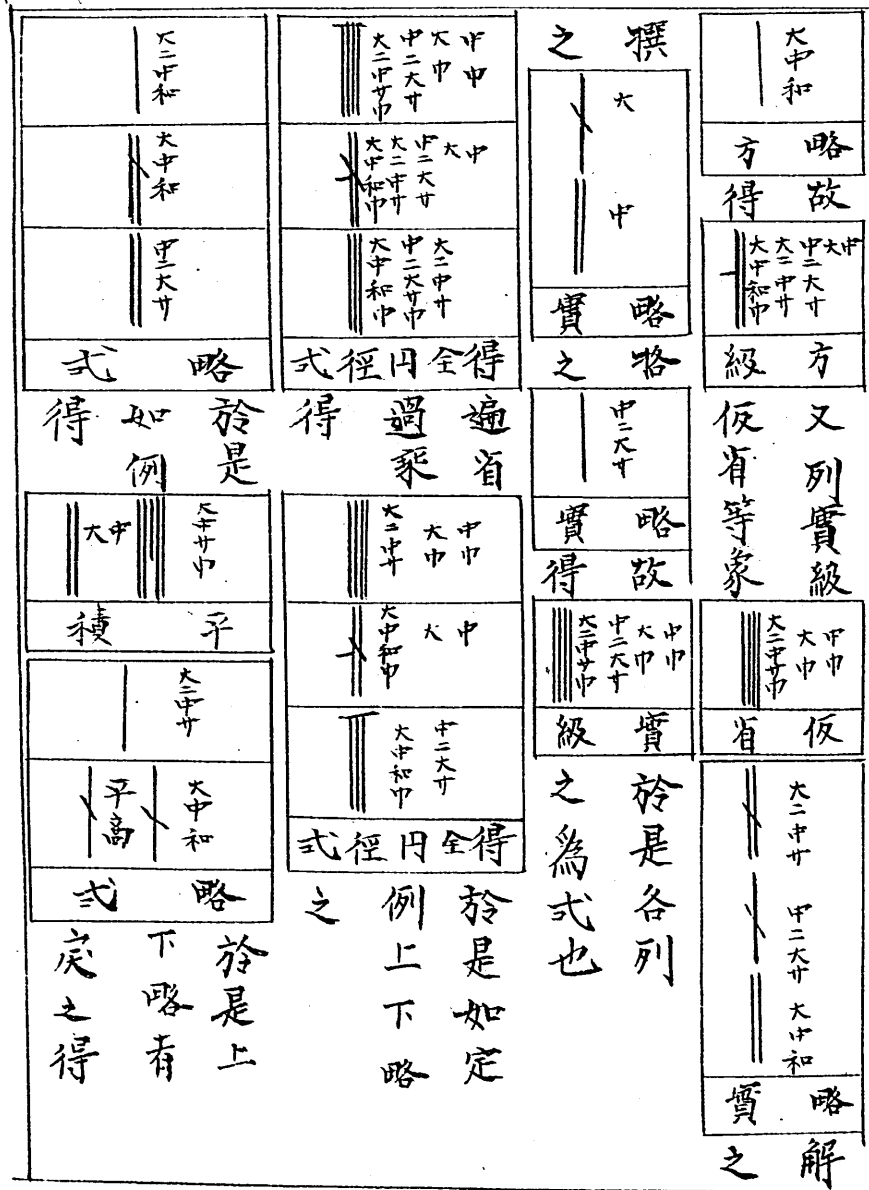 大中和
略方
故得
中大
中二大廾
大二中廾
大中和巾
方級
又列實級
仮省等象
中巾
大巾
大二中廾巾
仮省
大二中廾
中二大廾
大中和
略實
解之
撰之
大
中
略實
括之
中二大廾
略實
故得
中巾
大巾
中二大廾
大二中廾巾
實級
於是各列
之為式也
中巾
大巾
中二大廾
大二中廾巾
中大
中二大廾
大二中廾
大中和巾
大二中廾
中二大廾巾
大中和巾
得全円徑式
遍省
過乗
得
中巾
大巾
大二中廾
中
大
大中和巾
中二大廾
大中和巾
得全円徑式
於是如定
例上下略
之
大二中和
大中和
中二大廾
略式
於是
如例
得
大中廾巾
中大
平積
大二中廾
大中和
平高
略式
於是上
下略者
戻之得